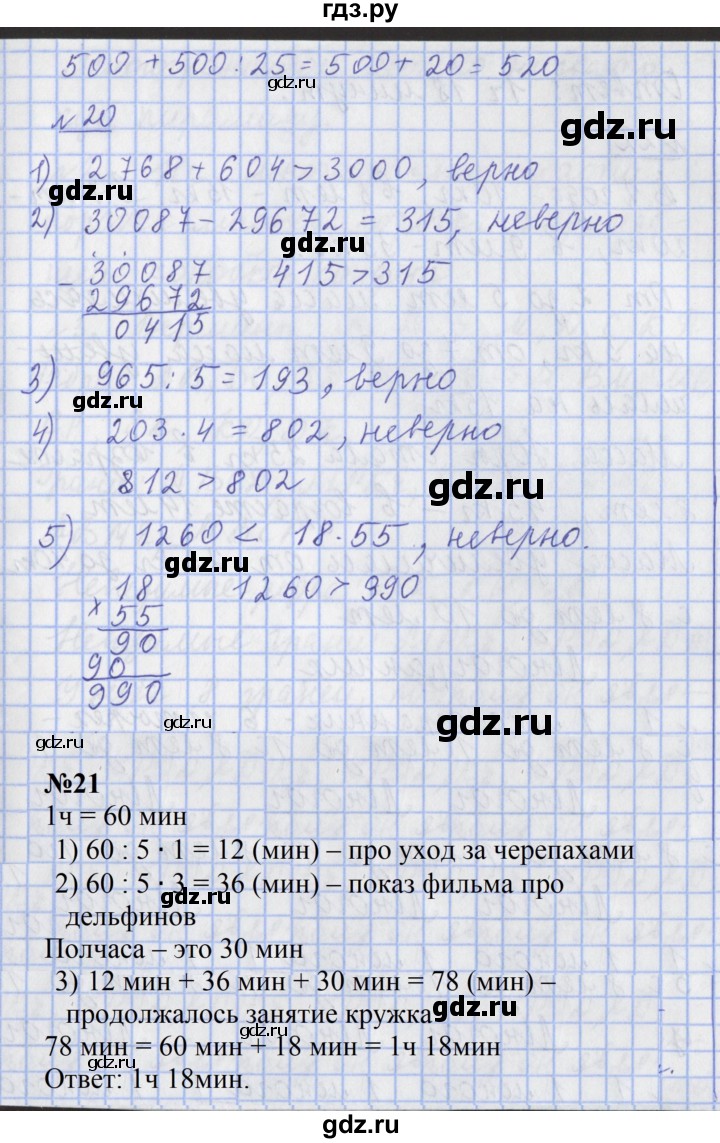 гдз.ру
500 + 500 : 25 = 500 + 20 = 520
gdz.ru
№20
gdz.ru
1) 2768 + 604 > 3000, верно
gdz.ru
2) 30087 - 29672 = 315, неверно
gdz.ru
- 30087 415 > 315
29672
0415
3) 965 : 5 = 193, верно
gdz.ru
4) 203 · 4 = 802, неверно
812 > 802
gdz.ru
5) 1260 < 18 · 55, неверно.
gdz.ru
18 1260 > 990
× 55
90
90
990
gdz.ru
gdz.ru
gdz.ru
№21
1ч = 60 мин
1) 60 : 5 · 1 = 12 (мин) – про уход за черепахами
2) 60 : 5 · 3 = 36 (мин) – показ фильма про
gdz.ru
дельфинов
Полчаса – это 30 мин
3) 12 мин + 36 мин + 30 мин = 78 (мин) –
продолжалось занятие кружка
gdz.ru
78 мин = 60 мин + 18 мин = 1ч 18мин
gdz.ru
Ответ: 1ч 18мин.
gdz.ru
gdz.ru